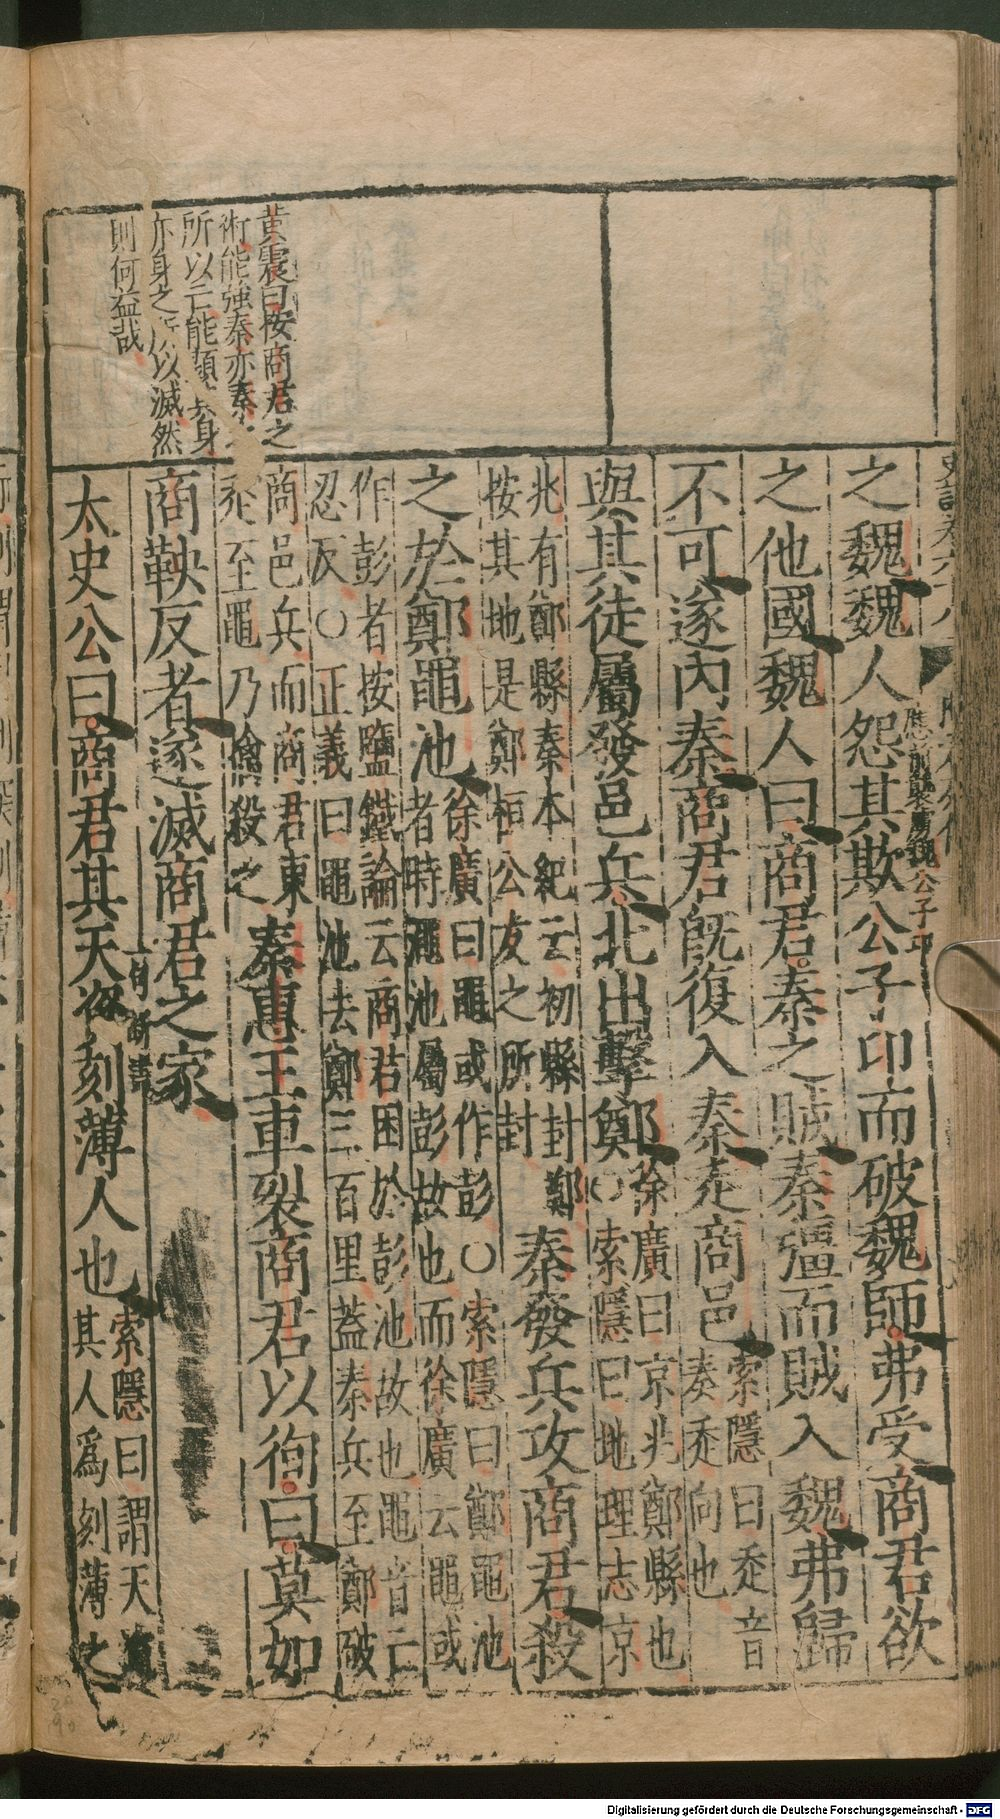 之魏魏人怨其欺公子卬而破魏師弗受商君欲
之他國魏人曰商君秦之賊秦彊而賊入魏弗歸
不可遂內秦商君既復入秦走商邑
索隱曰走音
奏走向也
與其徒屬發邑兵北出擊鄭
徐廣曰京兆鄭縣也
○索隱曰地理志京
兆有鄭縣秦本紀云初縣封鄭
按其地是鄭桓公友之所封
秦發兵攻商君殺
之於鄭黽池
徐廣曰黽或作彭○索隱曰鄭黽池
者時澠池屬彭故也而徐廣云黽或
作彭者按鹽鐵論云商君困於彭池故也黽音亡
忍反○正義曰黽池去鄭三百里蓋秦兵至鄭破
商邑兵而商君東
走至黽乃擒殺之
秦惠王車裂商君以徇曰莫如
商鞅反者遂滅商君之家
太史公曰商君其天資刻薄人也
索隱曰謂天資
其人為刻薄之
黃震曰按商君之
術能強秦亦秦
所以亡能顯其身
亦身之所以滅然
則何益哉
應前襲虜魏公子卬
Digitalisierung gefördert durch die Deutsche Forschungsgemeinschaft - DFG